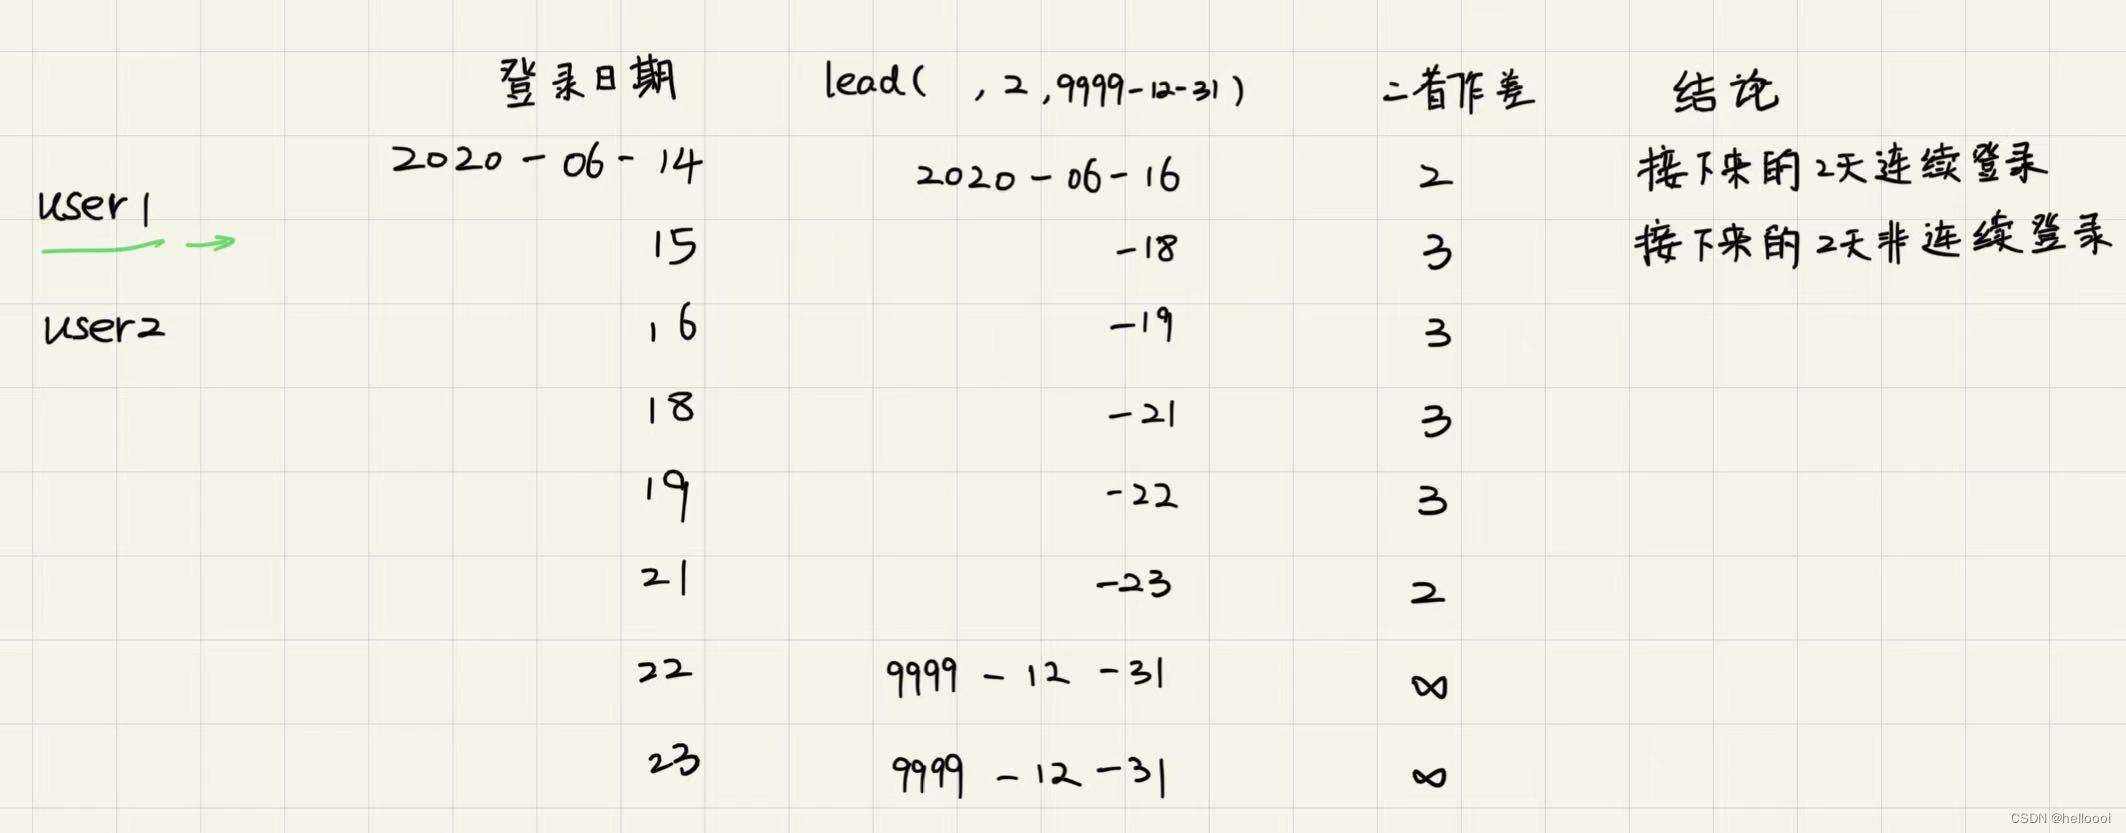 登录日期 lead( , 2, 9999-12-31) 二者作差 结论
2020-06-14 2020-06-16 2 接下来的2天连续登录
user1
15 -18 3 接下来的2天非连续登录
user2 16 -19 3
18 -21 3
19 -22 3
21 -23 2
22 9999-12-31 ∞
23 9999-12-31 ∞
CSDN @helloooi